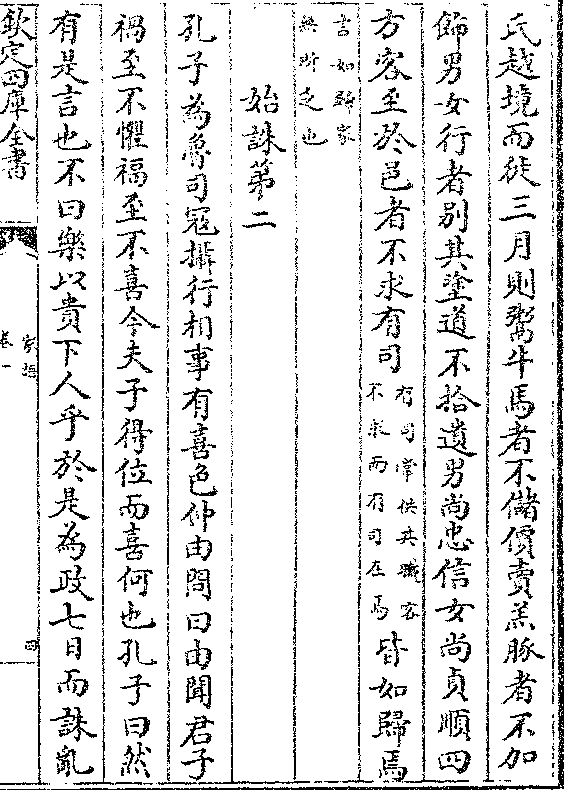 氏越境而徙三月則鬻牛馬者不儲價賣羔豚者不加
飾男女行者别其塗道不拾遺男尚忠信女尚貞順四
方客至於邑者不求有司有司常供其職客不求而有司在焉皆如歸焉
言如歸家無所乏也
始誅第二
孔子為魯司寇攝行相事有喜色仲由問曰由聞君子
禍至不懼福至不喜今夫子得位而喜何也孔子曰然
有是言也不曰樂以貴下人乎於是為政七日而誅亂
欽定四庫全書
家語
卷一
四